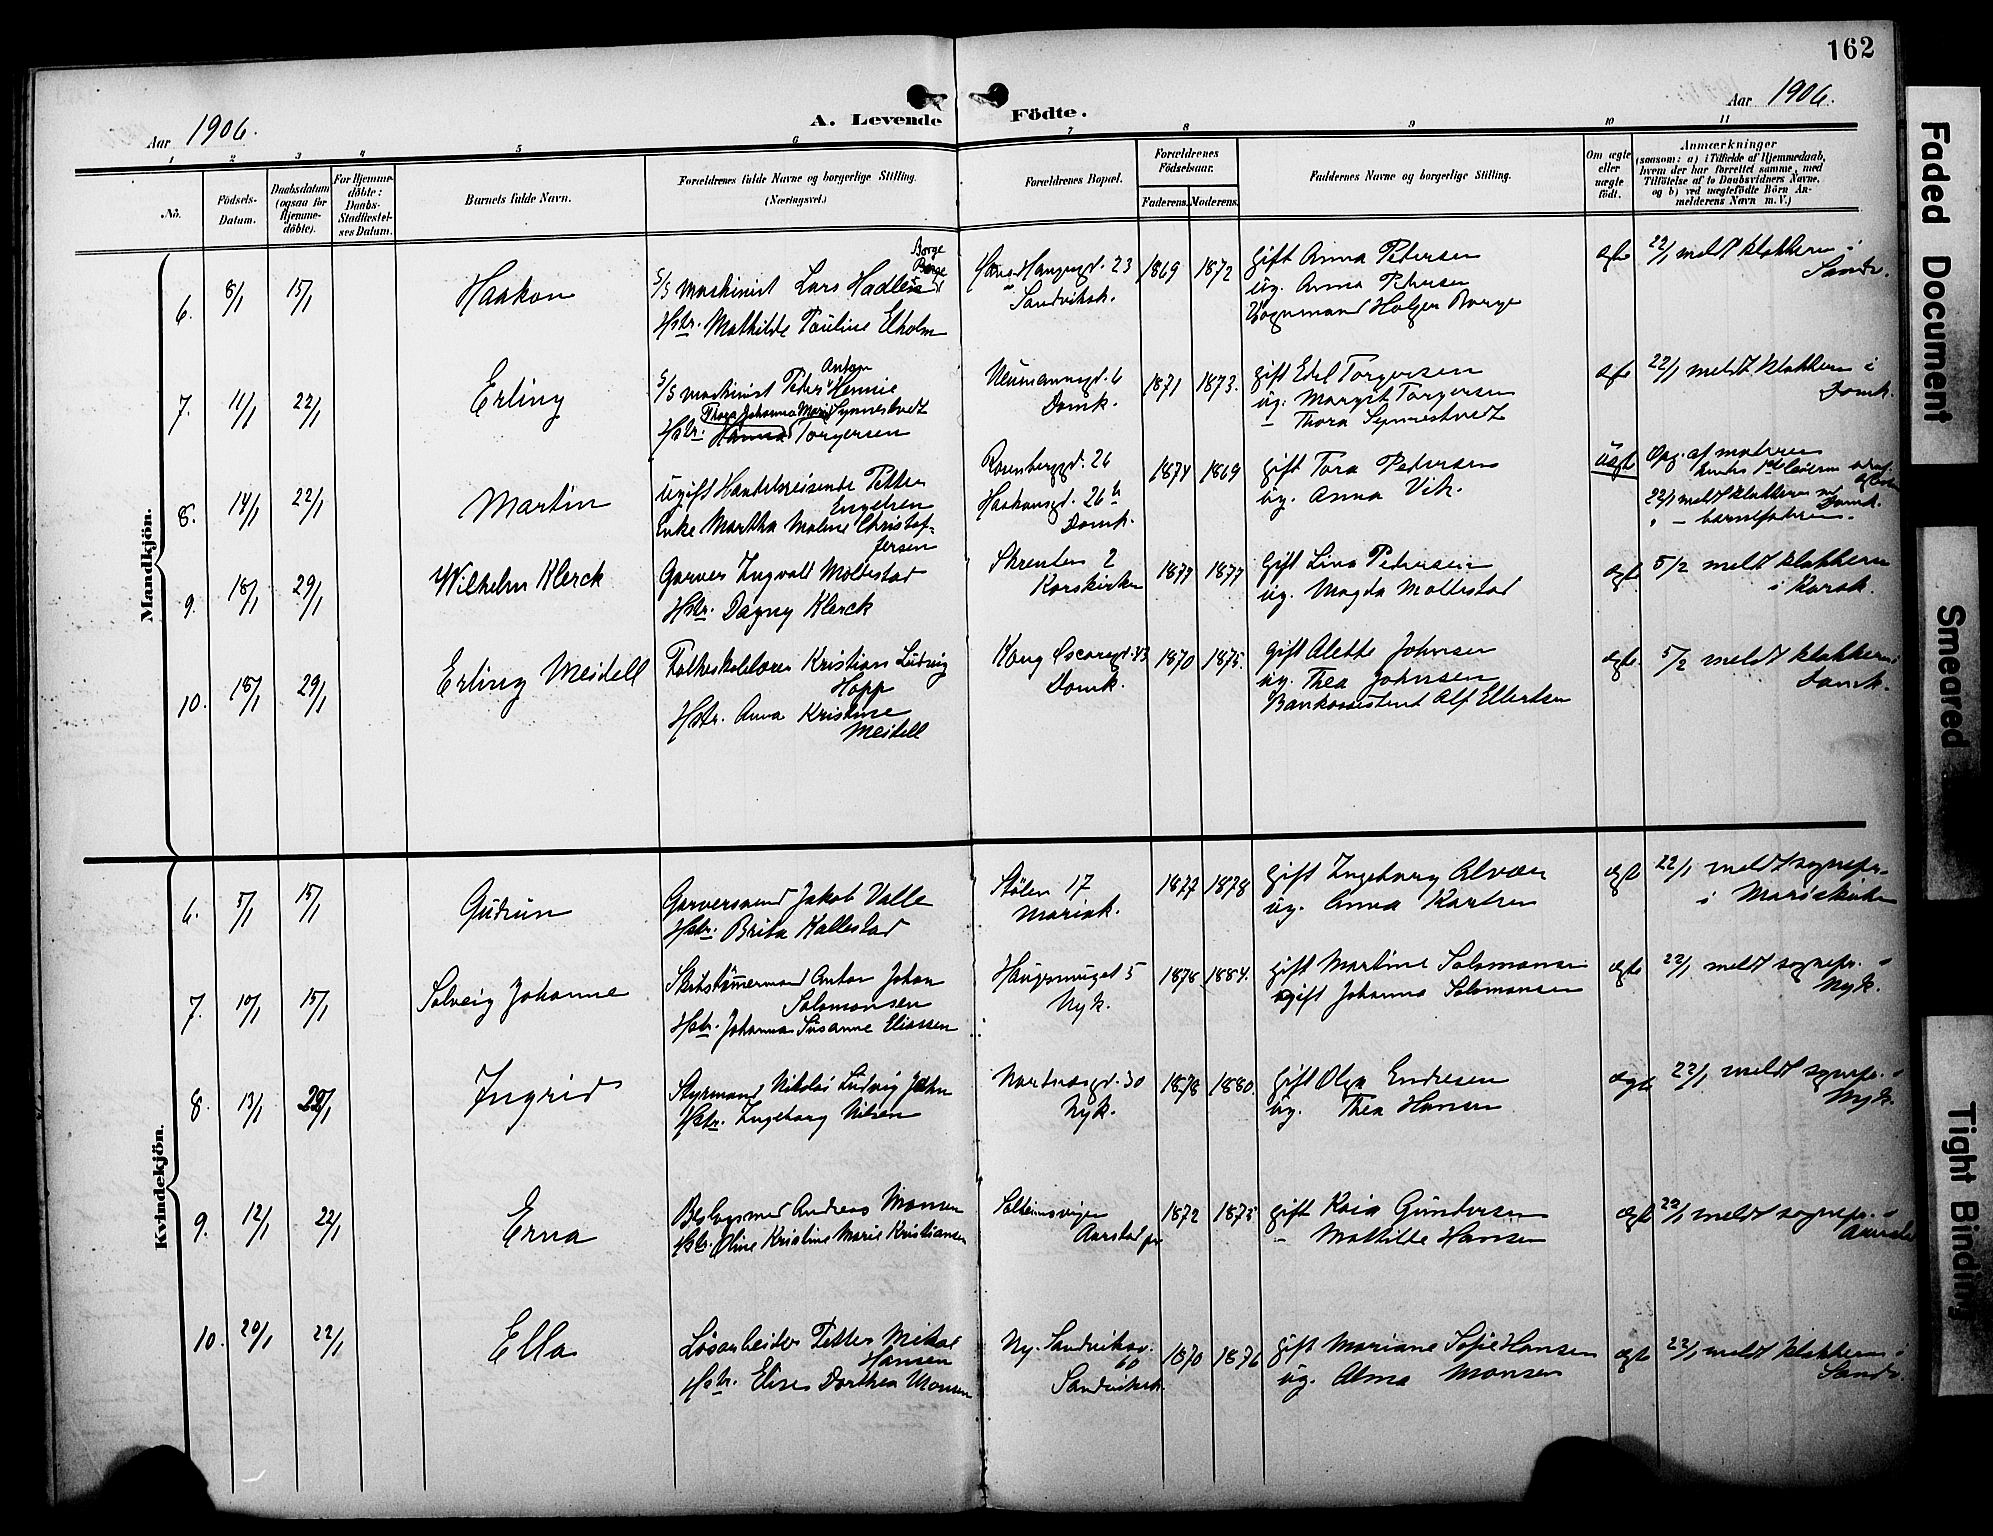 162
Aar 1906.
A. Levende Födte.
Aar 1906.
1 2 3 4 5 6 7 8 9 10 11
No.
Födsels-
Datum.
Daabsdatum
(ogsaa for
Hjemme-
döbte).
For Hjemme-
döbte:
Daabs-
Stadfæstel-
ses Datum.
Barnets fulde Navn.
Forældrenes fulde Navne og borgerlige Stilling.
(Næringsvei.)
Forældrenes Bopæl.
Forældrenes
Födselsaar.
Faderens.
Moderens.
Faddernes Navne og borgerlige Stilling.
Om ægte
eller
uægte
født.
Anmærkninger
(saasom: a) i Tilfælde af Hjemmedaab,
hvem der har forrettet samme, med
Tilföielse af to Daabsvidners Navne,
og b) ved uægtefödte Börn An-
melderens Navn m. V.)
Mandkjön.
6. 8/1 15/1 Haakon
Borge
S/S maskinist Lars Hadlein
Hstr. Mathilde Pauline Elholm
Haugegd. 23
Sandviksk.
1869 1872
gift Anna Petersen
ug. Anna Petersen
Vognmand Holger Borge
ægte
22/1 meldt klokkeren i
Sandv.
7. 11/1 22/1 Erling
Anton
S/S maskinist Peder Hennie
Thora Johanna Marie Synnestvedt
Hstr. Hanna Torgersen
Neumannsgd. 6
Domk.
1871 1873.
gift Edel Torgersen
ug. Margit Torgersen
– Thora Synnestvedt
ægte
22/1 meldt klokkeren i
Domk.
8. 14/1 22/1 Martin
Ugift Handelsreisende Petter
Engelsen
Enke Martha Malene Christof-
fersen
Rosenberggd. 26
Haakonsgd. 26 b
Domk.
1874 1869
gift Tora Pedersen
ug. Anna Vik.
uægte
Opg. af moderen
22/1 meldt klokkeren i
Domk.
" – barnefaderen.
9. 18/1 29/1 Wilhelm Klerck
Garver Ingvald Mollestad
Hstr. Dagny Klerck
Skrenten 2
Korskirken
1877 1877
gift Lina Pedersen
ug. Magda Mollestad
ægte
5/2 meldt klokkeren
i Korsk.
10. 18/1 29/1 Erling Meidell
Folkeskolelærer Kristian Ludvig
Hopp
Hstr. Anna Kristine
Meidell
Kong Oscarsgd. 33
Domk.
1870 1875.
gift Alette Johnsen
ug. Thea Johnsen
Bankassistent Alf Ellertsen
ægte.
5/2 meldt klokkeren i
Domk.
Kvindekjön.
6. 5/1 15/1 Gudrun
Garversvend Jakob Valle
Hstr. Brita Kallestad
Stølen 17
Mariak.
1877 1878
gift Ingeborg Alvær
ug. Anna Karlsen
ægte
22/1 meldt sognepr.
i Mariakirken
7. 10/1 15/1 Solveig Johanne
Skibstømmermand Anton Johan
Salomonsen
Hstr. Johanna Susanne Eliassen
Haugesmuget 5
Nyk.
1878 1884.
gift Martine Salomonsen
ugift Johanna Salomonsen
ægte
22/1 meldt sognepr. i
Nyk.
8. 13/1 22/1 Ingrid
Styrmand Nikolai Ludvig John
Hstr. Ingeborg Nilsen
Nordnæsgd. 30
Nyk.
1878 1880.
gift Olga Endresen
ug. Thea Hansen
ægte
22/1 meldt sognepr. i
Nyk.
9. 12/1 22/1 Erna
Andreas Monsen
Hstr. Oline Kristine Marie Kristiansen
Solheimsvigen
Aarstad pr
1872 1875
gift Kaia Gundersen
– Mathilde Hansen
ægte
22/1 meldt sognepr. i
Aarstad
10. 20/1 22/1 Ella
Løsarbeider Petter Mikal
Hansen
Hstr. Elise Dorthea Monsen
Ny-Sandviksv.
60
Sandviksk.
1870 1876
gift Mariane Sofie Hansen
ug. Alma Monsen
ægte
22/1 meldt klokkeren i
Sandv.
Faded Document
Smeared
Tight Binding